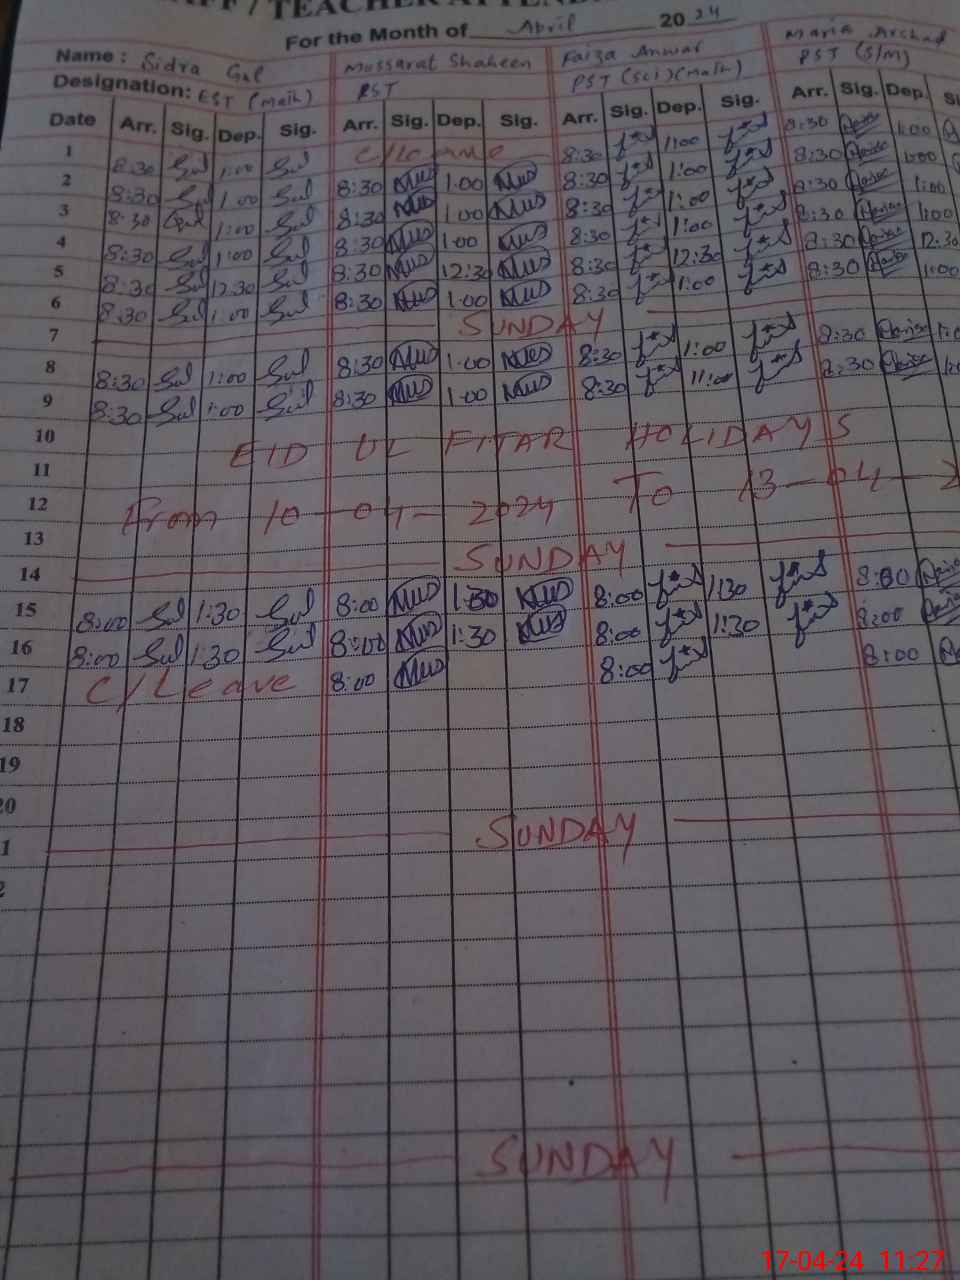 / TEACHER ATTEND
For the Month of April 2024
Name : Sidra Gul Mussarat Shaheen Faiza Anwar Maria Arshad
Designation: EST (math) PST PST (Sci)(Math) PST (S/M)
Date Arr. Sig. Dep. Sig. Arr. Sig. Dep. Sig. Arr. Sig. Dep. Sig. Arr. Sig. Dep.
1 8:30 Sul 1:00 Sul C/Leave 8:30 1:00 8:30 1:00
2 8:30 Sul 1:00 Sul 8:30 Mus 1:00 Mus 8:30 1:00 8:30 1:00
3 8:30 Gul 1:00 Sul 8:30 Mus 1:00 Mus 8:30 1:00 8:30 1:00
4 8:30 Sul 1:00 Sul 8:30 Mus 1:00 Mus 8:30 1:00 8:30 1:00
5 8:30 Sul 12:30 Sul 8:30 Mus 12:30 Mus 8:30 12:30 8:30 12:30
6 8:30 Sul 1:00 Sul 8:30 Mus 1:00 Mus 8:30 1:00 8:30 1:00
7 SUNDAY
8 8:30 Sul 1:00 Sul 8:30 Mus 1:00 Mus 8:30 1:00 8:30
9 8:30 Sul 1:00 Sul 8:30 Mus 1:00 Mus 8:30 11:00 8:30
10 EID UL FITAR HOLIDAYS
11
12 From 10-04-2024 To 13-04-2
13
14 SUNDAY
15 8:00 Sul 1:30 Sul 8:00 Mus 1:30 Mus 8:00 1:30 8:00
16 8:00 Sul 1:30 Sul 8:00 Mus 1:30 Mus 8:00 1:30 8:00
17 C/Leave 8:00 Mus 8:00 8:00
18
19
20
1 SUNDAY
2
SUNDAY
17-04-24 11:27